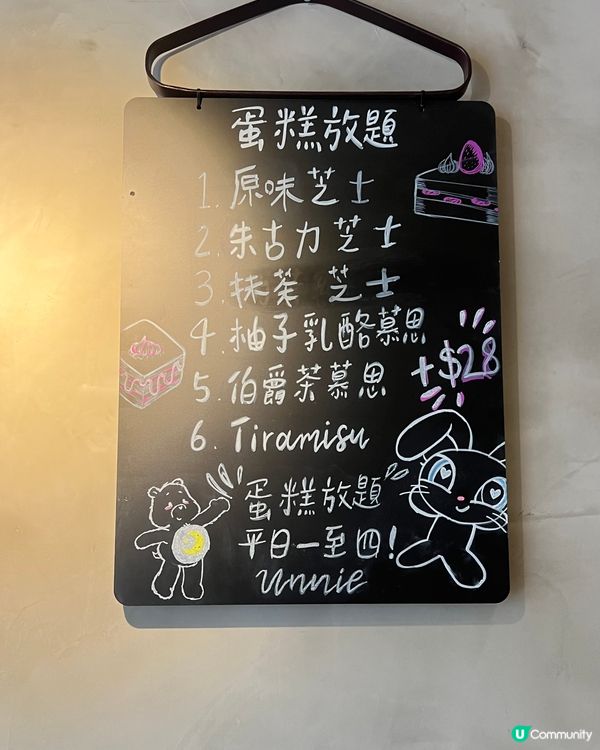 蛋糕放題
1. 原味芝士
2. 朱古力芝士
3. 抹茶 芝士
4. 柚子乳酪慕思
+$28
5. 伯爵茶慕思
6. Tiramisu
蛋糕放題
平日一至四!
unnie
U Community